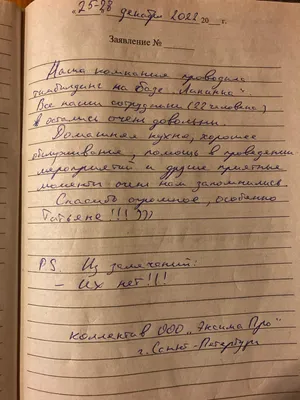 "25-28 декабря 2022 20__ г.
Заявление № ____
Наша компания проводила
тимбилдинг на базе "Лапапно"
Все наши сотрудники (22 человека)
остались очень довольны.
Домашняя кухня, хорошее
обслуживание, помощь в проведении
мероприятий и другие приятные
моменты очень нам запомнились.
Спасибо огромное, особенно
Татьяне!!!)))
P.S. Из замечаний:
- Их нет!!!
коллектив ООО "Эксима Про"
г. Санкт-Петербург